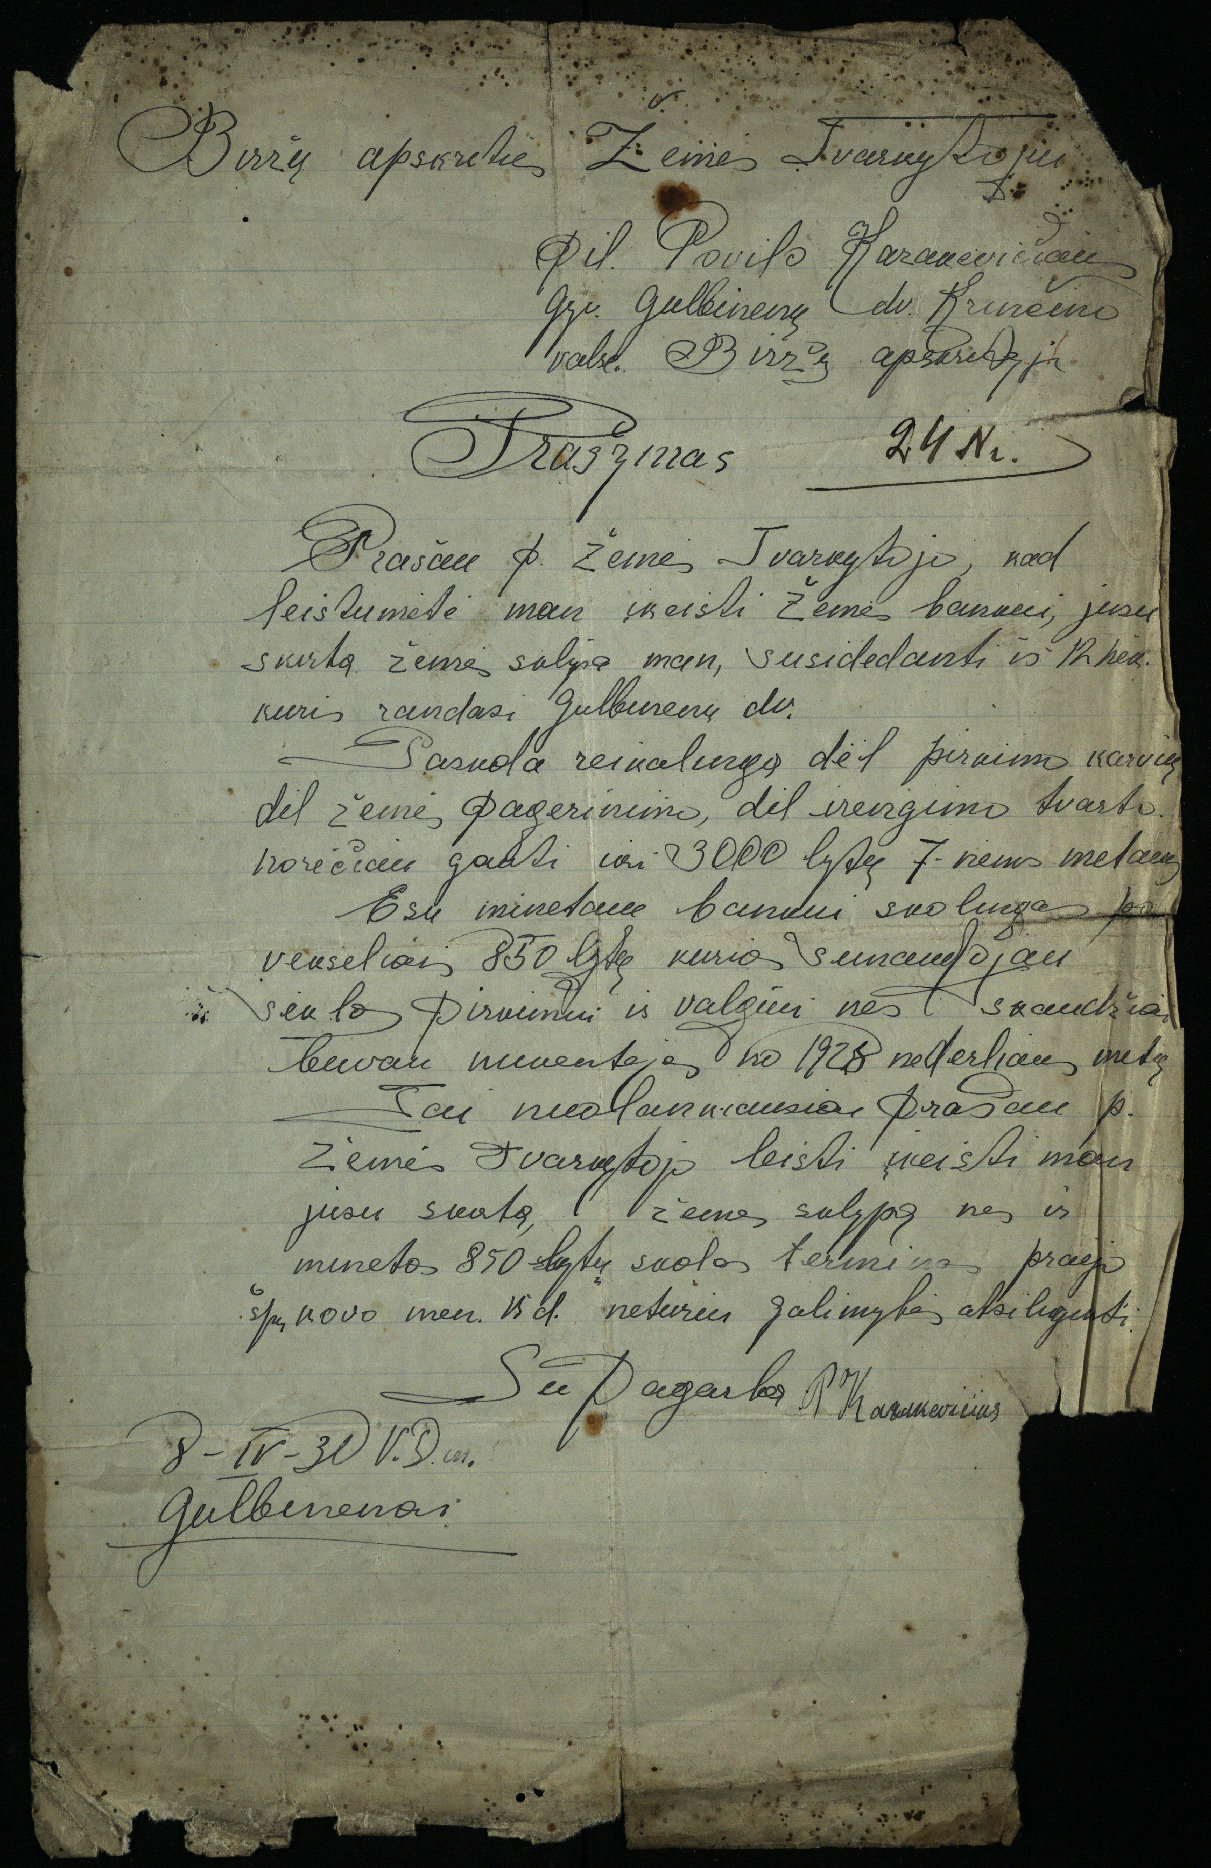 Biržų apskrities Žemės Tvarkytojui
Pil. Povilo Karanevičiaus
gyv. Gulbinėnų dv. Krinčino
valsč. Biržų apskrityje
Prašymas 24 Nr.
Prašau p. Žemės Tvarkytojo, kad
leistumėtė man įkeisti Žemės bankui, jusu
skirtą žemės sklypa man, susidedanti iš 12 hek.
kuris randasi Gulbinenų dv.
Paskola reikalinga dėl pirkimo karvių
dėl žemės pagerinimo, dėl irengimo tvarto.
norėčiau gauti iki 3000 lytų 7-niems metams
Esu minetam bankui skolingas pa
vekseliais 850 lytų kurios sunaudojau
sėklos pirkimui ir valgiui nes skaudžiai
buvau nukentėjęs no 1928 nederliaus metų
Tai nuolankiausiai prašau p.
Žemės Tvarkytojo leisti įkeisti man
jusu skirtą, žemes sklypą nes ir
minetos 850 lytų skolos terminas praėjo
šių kovo men. 15 d. neturiu galimybės atsilyginti.
Su Pagarba P Karanevičius
8-IV-30 V.D.m.
Gulbinenai